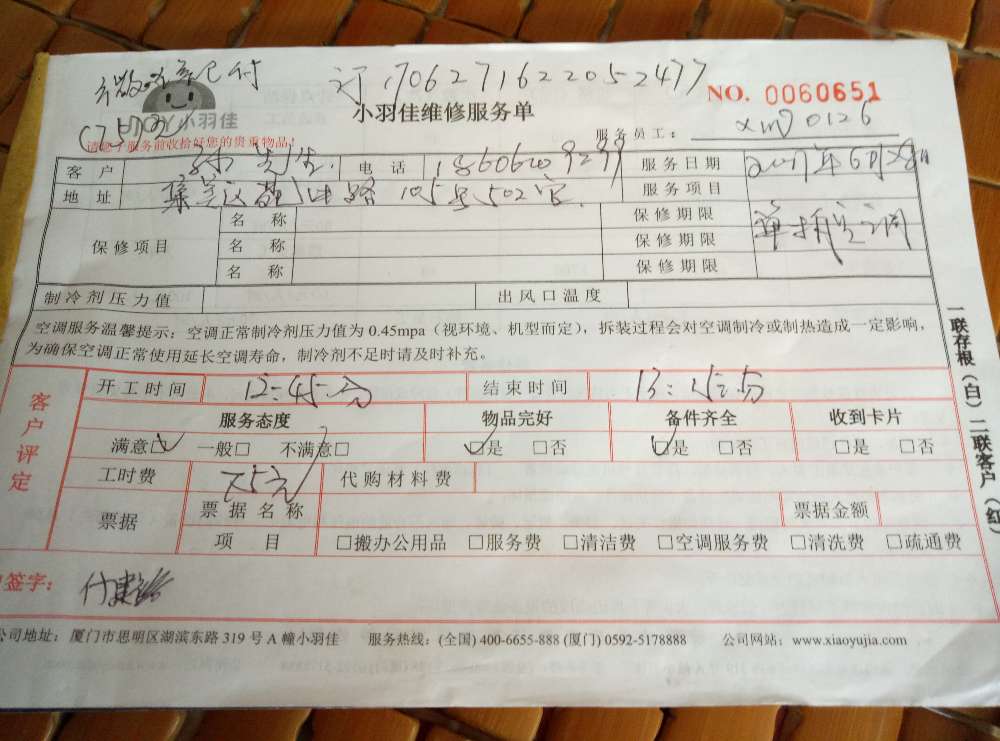 微信已付
订1706271622052477
NO. 0060651
小羽佳
小羽佳维修服务单
请您于服务前收拾好您的贵重物品!
服务员工: xm 0126
客户 先生 电话 服务日期 2017年6月28日
地址 集美区 路105号502室 服务项目 单拆空调
保修项目 名称 保修期限
名称 保修期限
名称 保修期限
制冷剂压力值 出风口温度
空调服务温馨提示:空调正常制冷剂压力值为 0.45mpa(视环境、机型而定),拆装过程会对空调制冷或制热造成一定影响,
为确保空调正常使用延长空调寿命,制冷剂不足时请及时补充。
客户评定
开工时间 12:45分 结束时间 13:15分
服务态度 物品完好 备件齐全 收到卡片
满意□ 一般□ 不满意□ □是 □否 □是 □否 □是 □否
工时费 75元 代购材料费
票据 票据名称 票据金额
项目 □搬办公用品 □服务费 □清洁费 □空调服务费 □清洗费 □疏通费
签字:
公司地址:厦门市思明区湖滨东路 319 号 A 幢小羽佳 服务热线:(全国) 400-6655-888 (厦门) 0592-5178888 公司网站:www.xiaoyujia.com
一联存根(白) 二联客户(红)